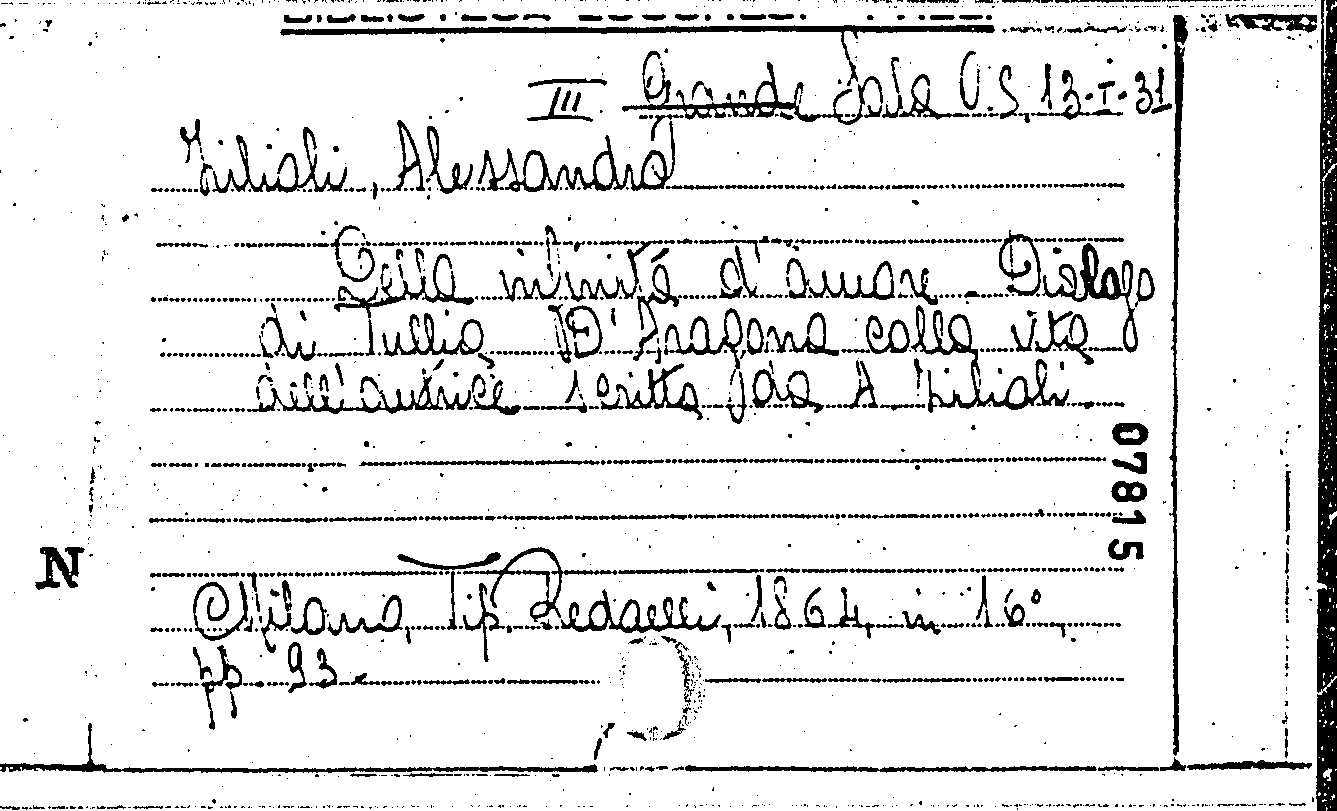 III Grande Sala V.S. 13-I-31
Zilioli, Alessandro
Della infinità d'amore - Dialogo
di Tullia D'Aragona colla vita
dell'autrice scritta da A. Zilioli.
07815
N
Milano, Tip. Redaelli, 1864, in 16°,
pp. 93.